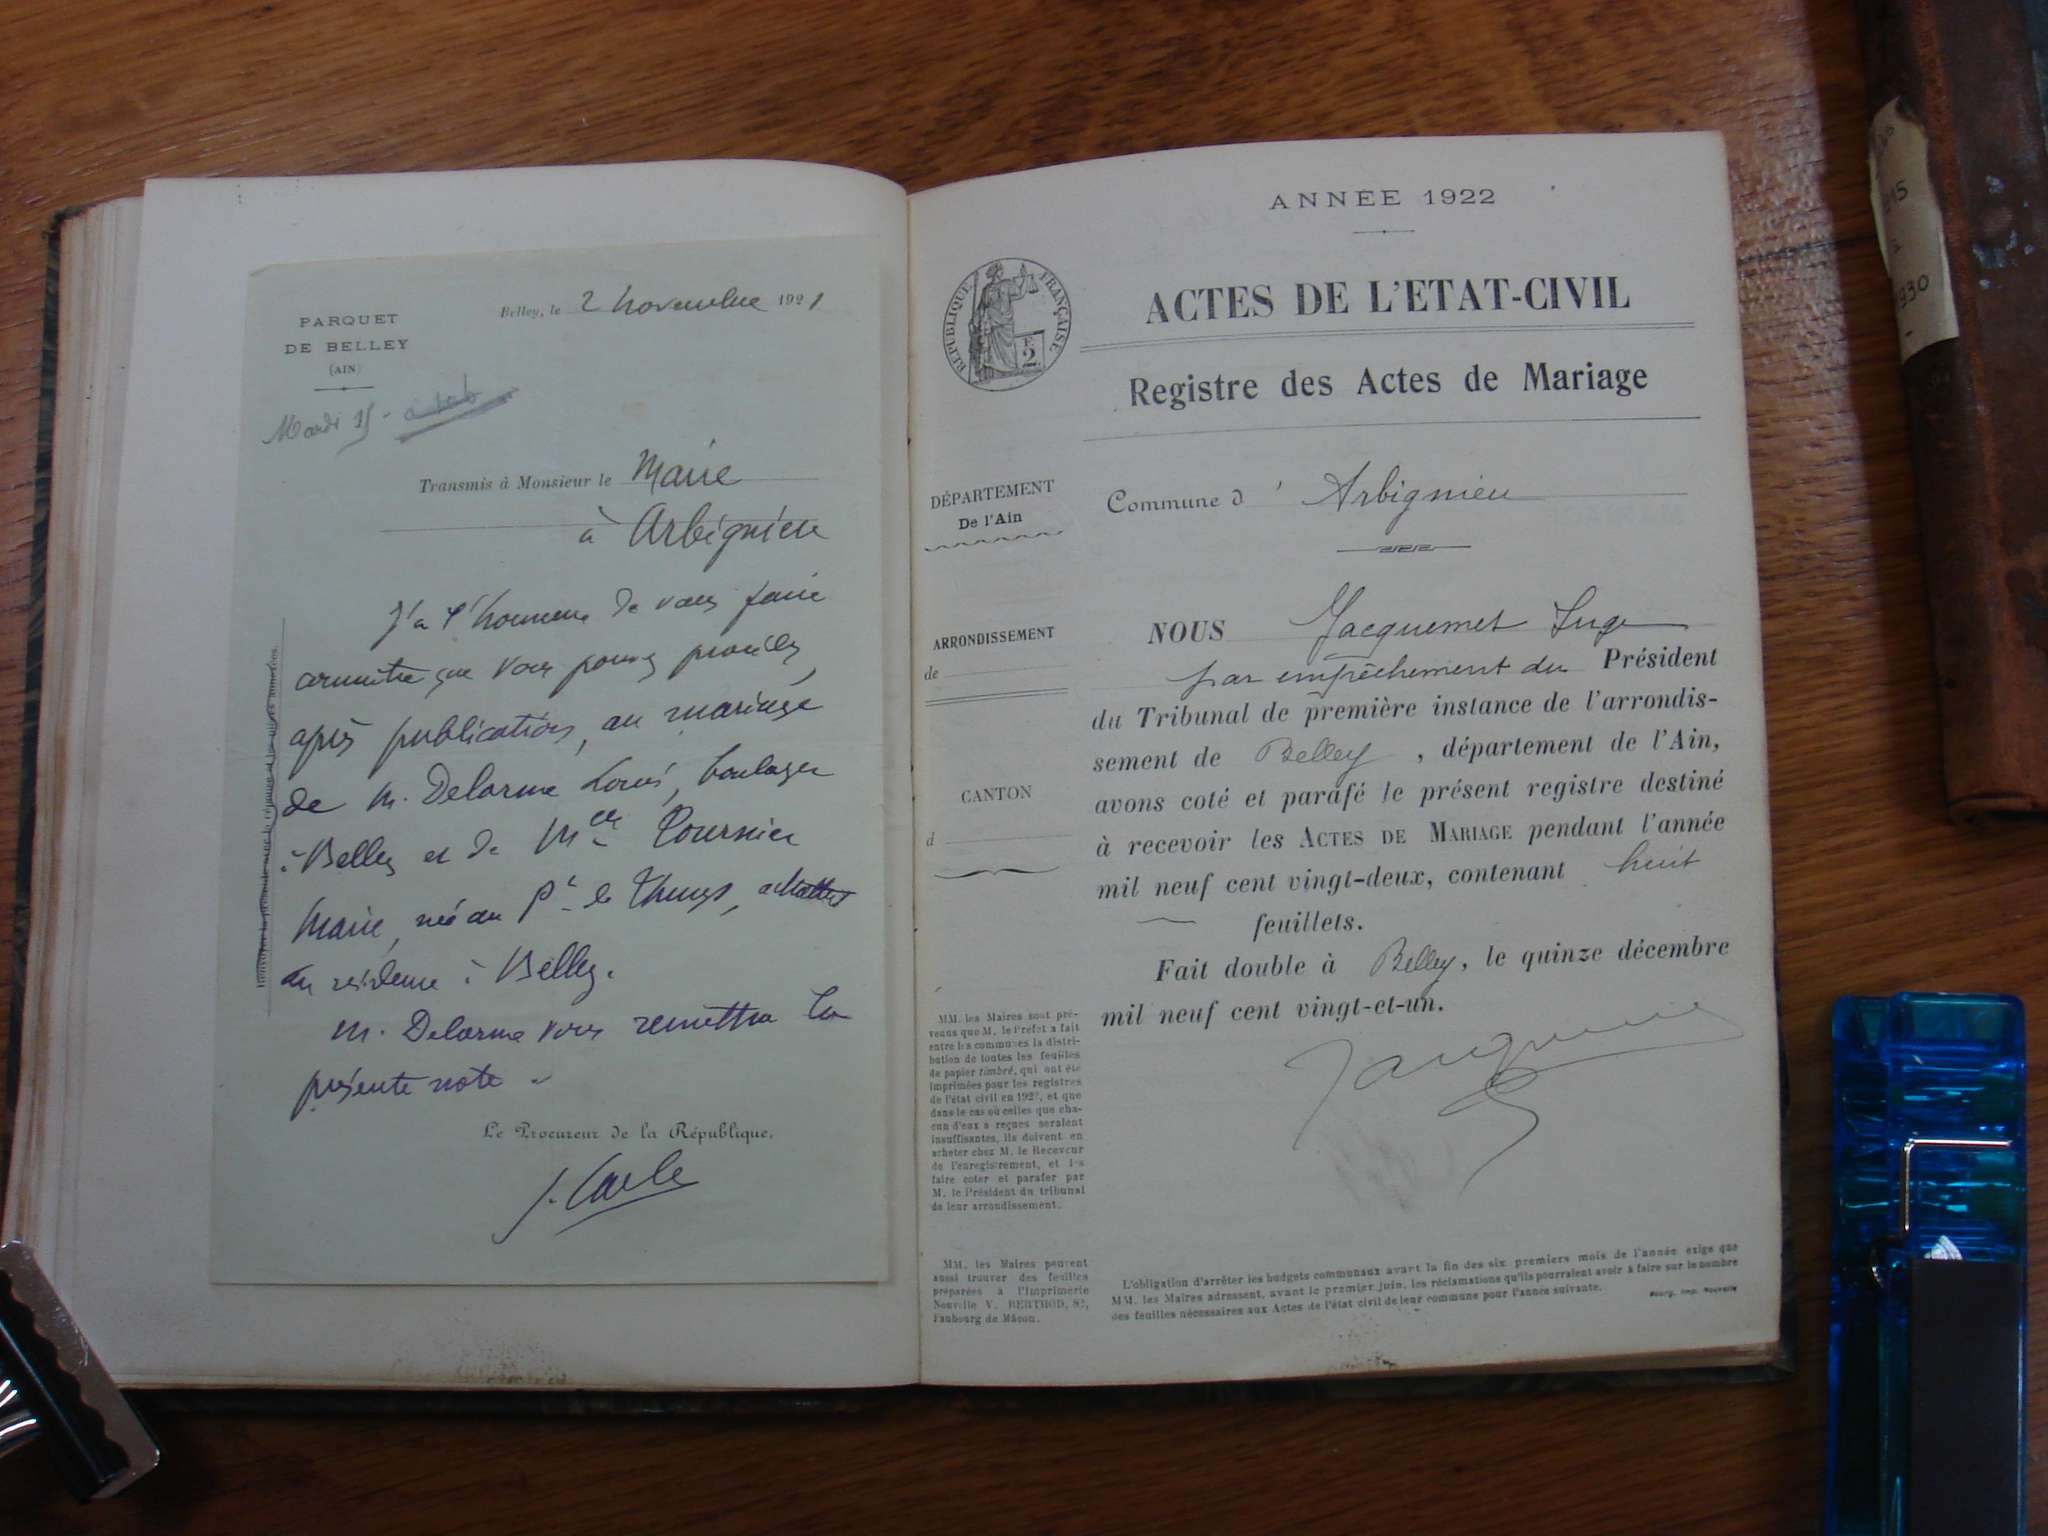 PARQUET
DE BELLEY
(AIN)
Belley, le 2 novembre 1921
Mardi 15 -
Transmis à Monsieur le Maire
à Arbignieu
J'a l'honneur de vous faire
connaître que vous pouvez procéder,
après publications, au mariage
de M. Delorme Louis, boulanger
à Belley et de Melle Tournier
Marie, née au
en résidence à Belley.
M. Delorme vous remettra la
présente note.
Le Procureur de la République,
J. Carle
ANNÉE 1922
RÉPUBLIQUE FRANÇAISE
F.
2
ACTES DE L'ETAT-CIVIL
Registre des Actes de Mariage
DÉPARTEMENT
De l'Ain
Commune d' Arbignieu
ARRONDISSEMENT
de
CANTON
d
NOUS Jacquemet Juge
par empêchement du Président
du Tribunal de première instance de l'arrondis-
sement de Belley, département de l'Ain,
avons coté et parafé le présent registre destiné
à recevoir les ACTES DE MARIAGE pendant l'année
mil neuf cent vingt-deux, contenant huit
feuillets.
Fait double à Belley, le quinze décembre
mil neuf cent vingt-et-un.
MM. les Maires sont pré-
venus que M. le Préfet a fait
entre les communes la distri-
bution de toutes les feuilles
de papier timbré, qui ont été
imprimées pour les registres
de l'état civil en 1922, et que
dans le cas où celles que cha-
cun d'eux a reçues seraient
insuffisantes, ils doivent en
acheter chez M. le Receveur
de l'enregistrement, et les
faire coter et parafer par
M. le Président du tribunal
de leur arrondissement.
MM. les Maires peuvent
aussi trouver des feuilles
préparées à l'Imprimerie
Nouvelle V. BERTHOD, 82,
Faubourg de Mâcon.
L'obligation d'arrêter les budgets communaux avant la fin des six premiers mois de l'année exige que
MM. les Maires adressent, avant le premier juin, les réclamations qu'ils pourraient avoir à faire sur le nombre
des feuilles nécessaires aux Actes de l'état civil de leur commune pour l'année suivante.
Bourg, Imp. Nouvelle
15
à
1930